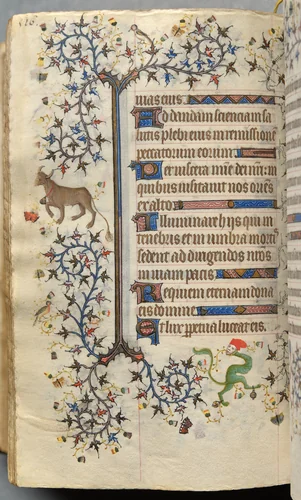 uias eius
Ad dandam scienciam sa
lutis plebi eius in remissionē
peccatorum eorum
Per uiscera mīe dei nrī: in
quibus uisitauit nos oriēs
ex alto
Illuminare hijs qui in
tenebris et in umbra mortꝭ
sedent ad dirigendos pedes nros
in uiam pacis
Requiem eternam dona
eis domine
Et lux perpetua luceat eis.